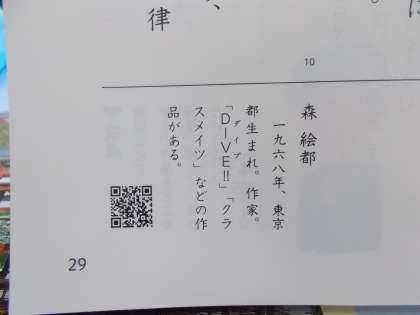 律、
。
10
森 絵都
一九六八年、東京
都生まれ。作家。
「DIVE!!」「クラ
ダイブ
スメイツ」などの作
品がある。
29